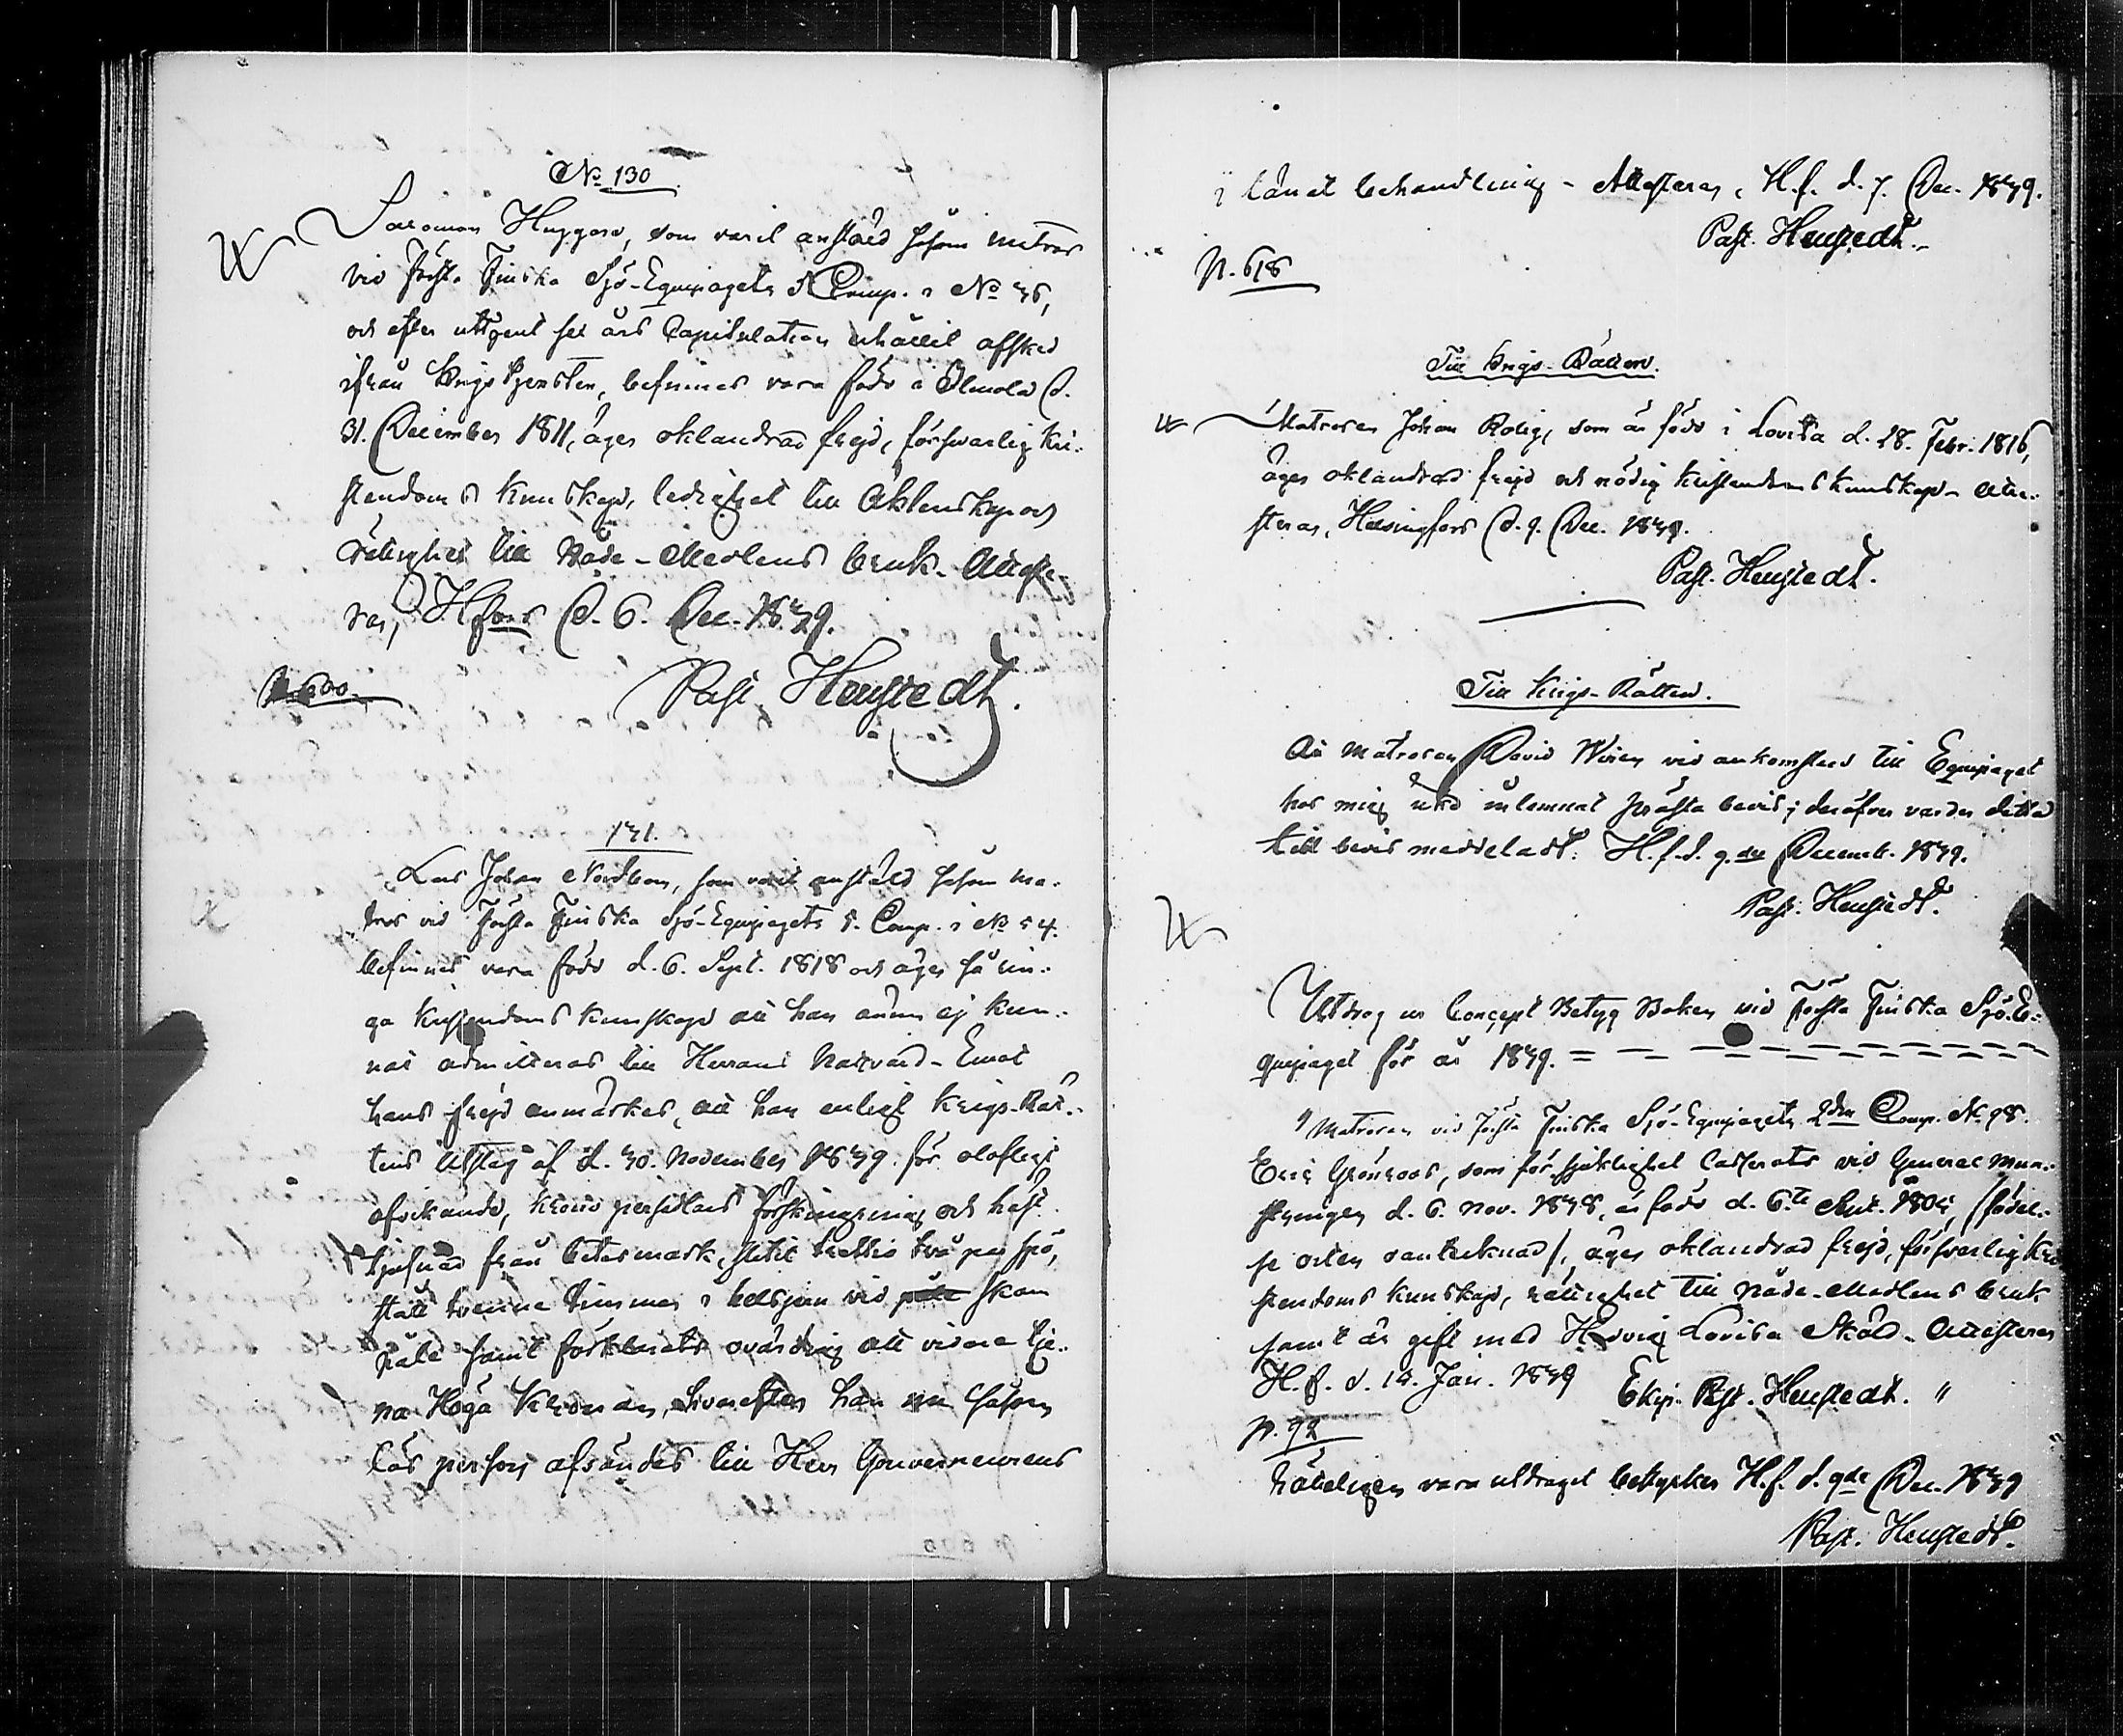 No 130
Salomon Huggare, som varit anstäld såsom matros
vid Första Finska Sjö-Equipagets 5 Comp. i No 36,
och efter uttjent sex års Capitulation erhållit afsked
ifrån Krigstjensten, befinnes vara född i Ulmola d.
31. December 1811, äger oklandrad frejd, försvarlig kri-
stendoms kunskap, ledighet till Äktenskap och
rättighet till Nåde-Medlens bruk. Atteste-
ras, H.fors d. 6. Dec. 1839.
p. 600. Past. Henstedt.
131.
Lars Johan Nordbom, som varit anstäld såsom ma-
tros vid Första Finska Sjö-Equipagets 5. Comp. i No 54.
befinnes vara född d. 6. Sept. 1818 och äger så rin-
ga kristendoms kunskap att han ännu ej kun-
nat admitteras till Herrans Nattvard. Emot
hans frejd anmärkes, att han enligt Krigs-Rät-
tens Utslag af d. 30. November 1839 för olofligt
afvikande, krono persedlars förskingring och häst
tjufnad från betesmark, slitit trettio två par spö,
stått tvenne timmar i halsjern vid skam
påle samt förklarats ovärdig att vidare tje-
na Höga Kronan, hvarefter han nu såsom
lös person afsändes till Herr Gouverneurens
i länet behandling - Attesteras, H.f. d. 7. Dec. 1839.
Past. Henstedt.
p. 618
Till Krigs-Rätten.
Matrosen Johan Rolig, som är född i Lovisa d. 28. Febr. 1816,
äger oklandrad frejd och nödig kristendoms kunskap - Atte-
steras, Helsingfors d. 9. Dec. 1839.
Past. Henstedt.
Till Krigs-Rätten.
Att Matrosen David Wirén vid ankomsten till Equipaget
hos mig inlemnat prästa bevis; deröfver varder detta
till bevis meddeladt. H.f. d. 9.de Decemb. 1839.
Past. Henstedt.
Utdrag ur Concept Betyg Boken vid Första Finska Sjö-E-
quipaget för år 1839. =
"Matrosen vid Första Finska Sjö-Equipagets 2dra Comp. N. 98.
Eric Grönroos, som för sjuklighet Casserats vid General mun-
stringen d. 6. Nov. 1838, är född d. 6.te 1804, (födel-
se orten oantecknad), äger oklandrad frejd, försvarlig kri
stendoms kunskap, rättighet till Nåde-Medlens bruk
samt är gift med Hedvig Lovisa Sköld. Attesteras
H.f. d. 14. Jan. 1839 Ekip. Past. Henstedt. "
p. 92
Rätteligen vara utdraget betygas H.f. d. 9de Dec. 1839
Past. Henstedt.